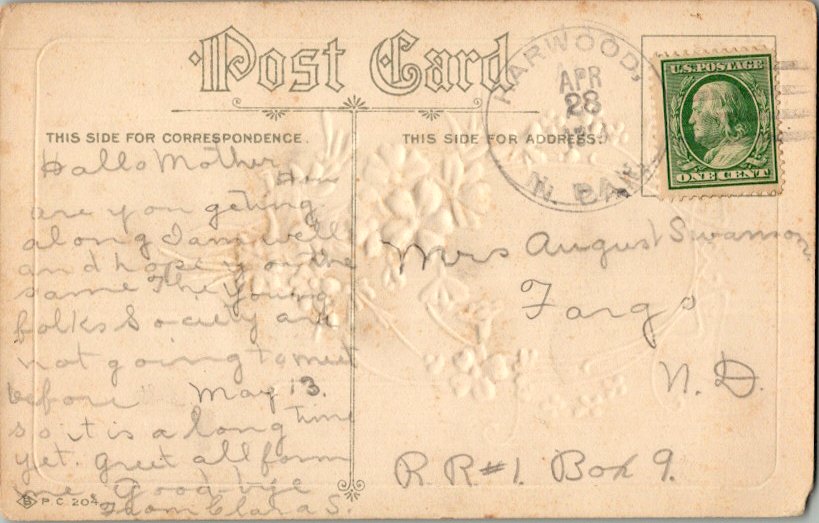 Post Card
THIS SIDE FOR CORRESPONDENCE.
THIS SIDE FOR ADDRESS.
HARWOOD,
APR
28
N. DAK.
U.S. POSTAGE
ONE CENT
Hallo Mother
How
are you geting
along I am well
and hope you the
same The young
folks Society are
not going to meet
before May 13.
so it is a long time
yet. greet all form
me Good-bye
From Clara S.
P.C. 204
Mrs August Swanson
Fargo
N. D.
R R #1. Box 9.